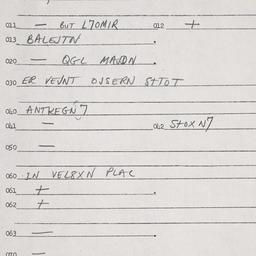 011 — BUT L7OMIR 012 +
013 BALEJTN .
020 — QGL MAJDN .
030 ER VEJNT OJSERN STTOT
060 ANTKEGN7
061 — 062 STOXN7
050 —
060 IN VEL8XN PLAC
061 + .
062 +
063 — .
070 —